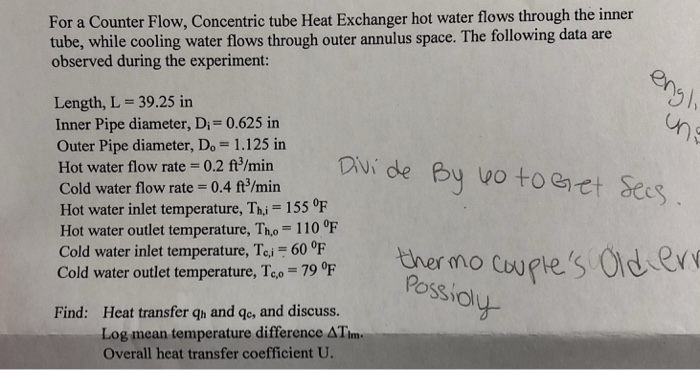 For a Counter Flow, Concentric tube Heat Exchanger hot water flows through the inner
tube, while cooling water flows through outer annulus space. The following data are
observed during the experiment:
engl
Length, L = 39.25 in
Inner Pipe diameter, Di = 0.625 in
Outer Pipe diameter, Do = 1.125 in
Hot water flow rate = 0.2 ft³/min
Divide By 60 to Get Secs.
Cold water flow rate = 0.4 ft³/min
Hot water inlet temperature, Th,i = 155 ⁰F
Hot water outlet temperature, Th,o = 110 ⁰F
Cold water inlet temperature, Tc,i = 60 ⁰F
thermo couple's Old err
Cold water outlet temperature, Tc,o = 79 ⁰F
Possibly
Find: Heat transfer qh and qc, and discuss.
Log mean temperature difference ΔTlm.
Overall heat transfer coefficient U.